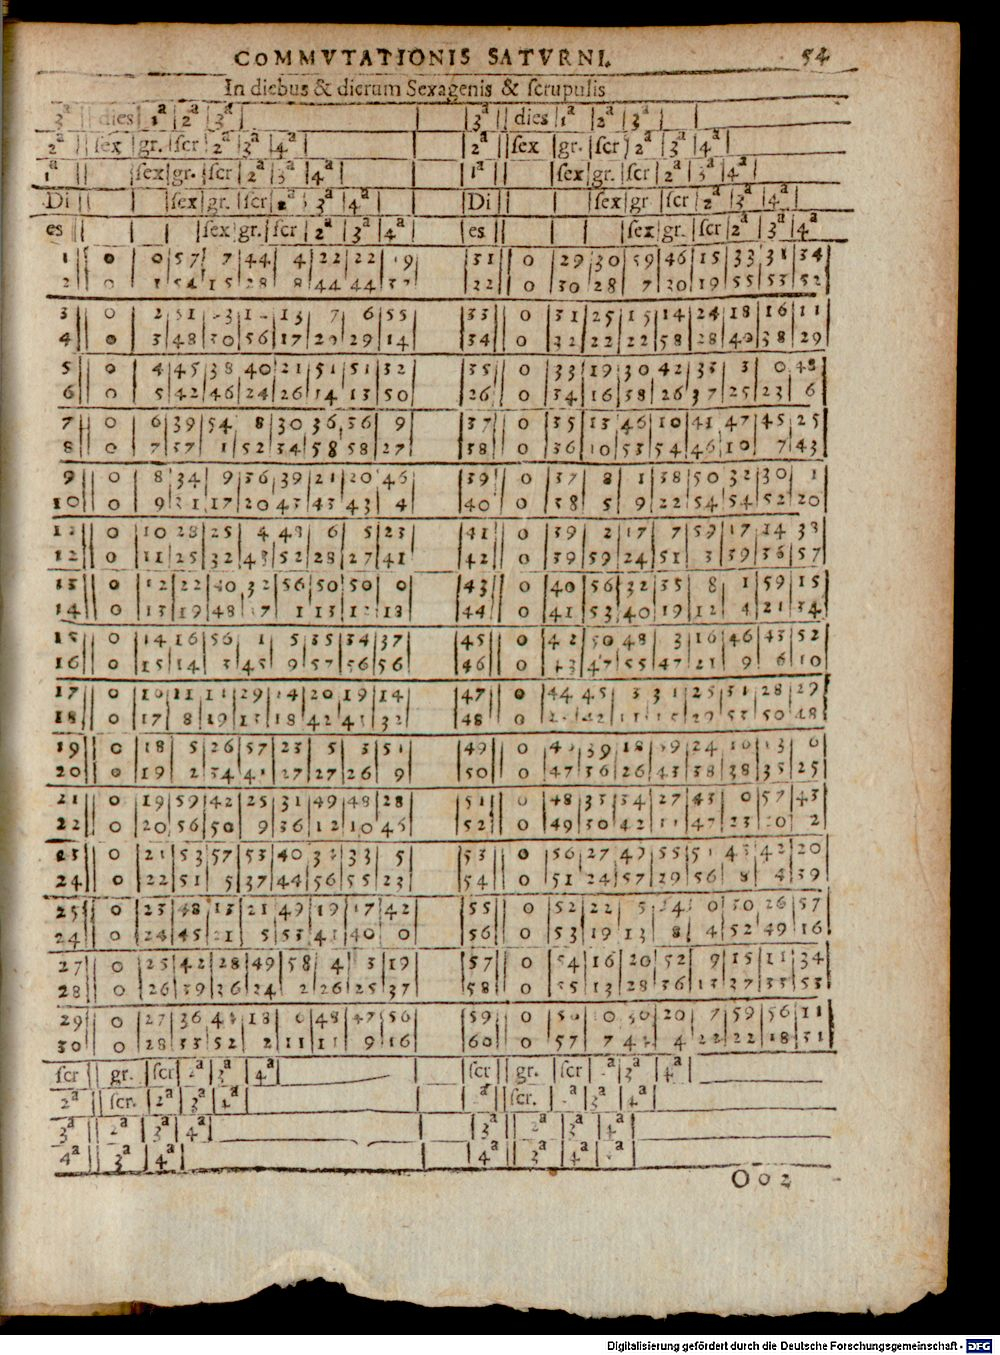 COMMVTATIONIS SATVRNI. 54
In diebus & dierum Sexagenis & scrupulis
3ª dies 1ª 2ª 3ª 3ª dies 1ª 2ª 3ª
2ª sex gr. scr 2ª 3ª 4ª 2ª sex gr. scr 2ª 3ª 4ª
1ª sex gr. scr 2ª 3ª 4ª 1ª sex gr. scr 2ª 3ª 4ª
Di sex gr. scr 2ª 3ª 4ª Di sex gr scr 2ª 3ª 4ª
es sex gr. scr 2ª 3ª 4ª es sex gr. scr 2ª 3ª 4ª
1 0 0 57 7 44 4 22 22 19 31 0 29 30 59 46 15 33 31 34
2 0 1 54 15 28 8 44 44 37 32 0 30 28 7 30 19 55 53 52
3 0 2 51 23 13 7 6 55 33 0 31 25 15 14 24 18 16 11
4 0 3 48 30 56 17 29 29 14 34 0 32 22 22 58 28 40 38 29
5 0 4 45 38 40 21 51 51 32 35 0 33 19 30 42 33 3 0 48
6 0 5 42 46 24 26 14 13 50 36 0 34 16 38 26 37 25 23 6
7 0 6 39 54 8 30 36 36 9 37 0 35 13 46 10 41 47 45 25
8 0 7 37 1 52 34 58 58 27 38 0 36 10 53 54 46 10 7 43
9 0 8 34 9 36 39 21 20 46 39 0 37 8 1 38 50 32 30 1
10 0 9 31 17 20 43 43 43 4 40 0 38 5 9 22 54 54 52 20
11 0 10 28 25 4 48 6 5 23 41 0 39 2 17 7 59 17 14 38
12 0 11 25 32 48 52 28 27 41 42 0 39 59 24 51 3 39 36 57
13 0 12 22 40 32 56 50 50 0 43 0 40 56 32 35 8 1 59 15
14 0 13 19 48 17 1 13 12 18 44 0 41 53 40 19 12 4 21 34
15 0 14 16 56 1 5 35 34 37 45 0 42 50 48 3 16 46 43 52
16 0 15 14 3 45 9 57 56 56 46 0 43 47 55 47 21 9 6 10
17 0 16 11 11 29 14 20 19 14 47 0 44 45 3 31 25 31 28 29
18 0 17 8 19 13 18 42 41 32 48 0 42 11 15 29 53 50 48
19 0 18 5 26 57 23 5 3 51 49 0 46 39 18 59 24 16 13 6
20 0 19 2 34 41 27 27 26 9 50 0 47 36 26 43 38 38 35 25
21 0 19 59 42 25 31 49 48 28 51 0 48 33 34 27 43 0 57 43
22 0 20 56 50 9 36 12 10 46 52 0 49 30 42 11 47 23 20 2
23 0 21 53 57 53 40 34 33 5 53 0 56 27 49 55 51 45 42 20
24 0 22 51 5 37 44 56 55 23 54 0 51 24 57 29 56 8 4 39
25 0 23 48 13 21 49 19 17 42 55 0 52 22 5 24 0 30 26 57
24 0 24 45 21 5 53 41 40 0 56 0 53 19 13 8 4 52 49 16
27 0 25 42 28 49 58 4 3 19 57 0 54 16 20 52 9 15 11 34
28 0 26 39 36 34 2 26 25 37 58 0 55 13 28 36 13 37 33 53
29 0 27 36 44 18 6 48 47 56 59 0 56 10 36 20 7 59 56 11
30 0 28 33 52 2 11 11 9 16 60 0 57 7 44 4 22 22 18 31
scr gr. scr 2ª 3ª 4ª scr gr. scr 3ª 4ª
2ª scr. 2ª 3ª 4ª scr. 3ª 4ª
3ª 2ª 3ª 4ª 3ª 2ª 3ª 4ª
4ª 3ª 4ª 4ª 3ª 4ª
Oo2
Digitalisierung gefördert durch die Deutsche Forschungsgemeinschaft - DFG